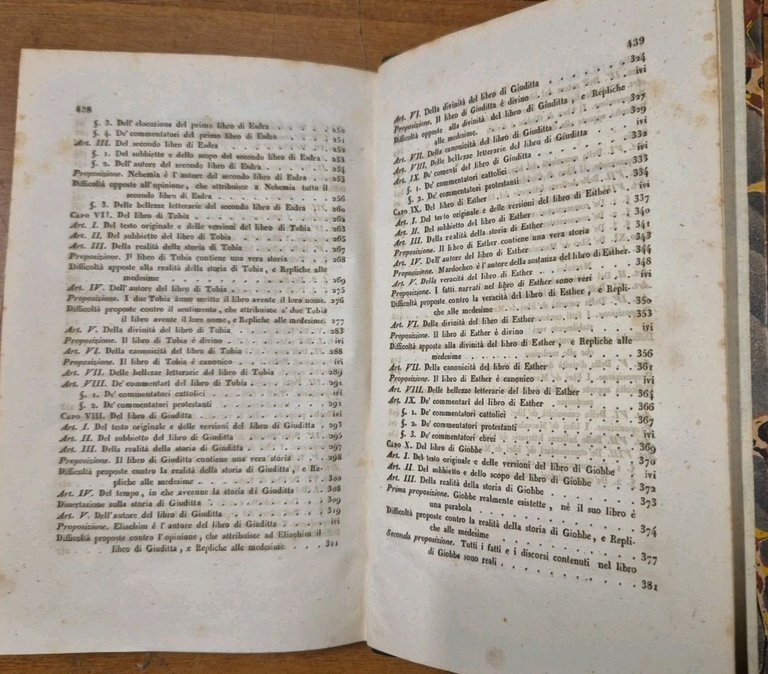 438
§. 3. Dell' elocuzione del primo libro di Esdra . . . . . 250
§. 4. De' commentatori del primo libro di Esdra . . . . . 252
Art. III. Del secondo libro di Esdra . . . . . ivi
§. 1. Del subbietto e dello scopo del secondo libro di Esdra . 253
§. 2. Dell' autore del secondo libro di Esdra . . . . . 254
Proposizione. Nehemia è l'autore del secondo libro di Esdra . . . ivi
Difficoltà opposte all' opinione, che attribuisce a Nehemia tutto il
secondo libro di Esdra . . . . . 256
§. 3. Delle bellezze letterarie del secondo libro di Esdra . . 260
Capo VII. Del libro di Tobia . . . . . ivi
Art. I. Del testo originale e delle versioni del libro di Tobia . . 262
Art. II. Del subbietto del libro di Tobia . . . . . 265
Art. III. Della realità della storia di Tobia . . . . . 267
Proposizione. Il libro di Tobia contiene una vera storia . . . 268
Difficoltà opposte alla realità della storia di Tobia, e Repliche alle
medesime . . . . . 269
Art. IV. Dell' autore del libro di Tobia . . . . . 275
Proposizione. I due Tobia ànno scritto il libro avente il loro nome. 276
Difficoltà proposte contro il sentimento, che attribuisce a' due Tobia
il libro avente il loro nome, e Repliche alle medesime. 277
Art. V. Della divinità del libro di Tobia . . . . . 283
Proposizione. Il libro di Tobia è divino . . . . . ivi
Art. VI. Della canonicità del libro di Tobia . . . . . 288
Proposizione. Il libro di Tobia è canonico . . . . . ivi
Art. VII. Delle bellezze letterarie del libro di Tobia . . . 289
Art. VIII. De' commentari del libro di Tobia . . . . . 291
§. 1. De' commentatori cattolici . . . . . ivi
§. 2. De' commentatori protestanti . . . . . 292
Capo VIII. Del libro di Giuditta . . . . . ivi
Art. I. Del testo originale e delle versioni del libro di Giuditta . . 293
Art. II. Del subbietto del libro di Giuditta . . . . . 295
Art. III. Della realità della storia di Giuditta . . . . . 296
Proposizione. Il libro di Giuditta contiene una vera storia . . . 298
Difficoltà proposte contro la realità della storia di Giuditta, e Re-
pliche alle medesime . . . . . 300
Art. IV. Del tempo, in che avvenne la storia di Giuditta . . . 308
Dissertazione sulla storia di Giuditta . . . . . 309
Art. V. Dell' autore del libro di Giuditta . . . . . 319
Proposizione. Eliachim è l' autore del libro di Giuditta . . . ivi
Difficoltà proposte contro l' opinione, che attribuisce ad Eliachim il
libro di Giuditta, e Repliche alle medesime . . . 321
439
Art. VI. Della divinità del libro di Giuditta . . . . . 324
Proposizione. Il libro di Giuditta è divino . . . . . ivi
Difficoltà opposte alla divinità del libro di Giuditta, e Repliche
alle medesime . . . . . 327
Art. VII. Della canonicità del libro di Giuditta . . . . . 329
Art. VIII. Delle bellezze letterarie del libro di Giuditta . . . ivi
Art. IX. De' comenti del libro di Giuditta . . . . . 332
§. 1. De' commentatori cattolici . . . . . ivi
§. 2. De' commentatori protestanti . . . . . 333
Capo IX. Del libro di Esther . . . . . 334
Art. I. Del testo originale e delle versioni del libro di Esther . . ivi
Art. II. Del subbietto del libro di Esther . . . . . 337
Art. III. Della realità della storia di Esther . . . . . 340
Proposizione. Il libro di Esther contiene una vera storia . . . 341
Art. IV. Dell' autore del libro di Esther . . . . . 343
Proposizione. Mardocheo è l'autore della sustanza del libro di Esther. 344
Art. V. Della veracità del libro di Esther . . . . . 348
Proposizione. I fatti narrati nel libro di Esther sono veri . . . ivi
Difficoltà proposte contro la veracità del libro di Esther, e Repli-
che alle medesime . . . . . 350
Art. VI. Della divinità del libro di Esther . . . . . 353
Proposizione. Il libro di Esther è divino . . . . . ivi
Difficoltà opposte alla divinità del libro di Esther, e Repliche alle
medesime . . . . . 356
Art. VII. Della canonicità del libro di Esther . . . . . 361
Proposizione. Il libro di Esther è canonico . . . . . ivi
Art. VIII. Delle bellezze letterarie del libro di Esther . . . 364
Art. IX. De' commentarî del libro di Esther . . . . . 366
§. 1. De' commentatori cattolici . . . . . ivi
§. 2. De' commentatori protestanti . . . . . 367
§. 3. De' commentatori ebrei . . . . . ivi
Capo X. Del libro di Giobbe . . . . . 369
Art. I. Del testo originale e delle versioni del libro di Giobbe . . 370
Art. II. Del subbietto e dello scopo del libro di Giobbe . . . ivi
Art. III. Della realità della storia di Giobbe . . . . . 372
Prima proposizione. Giobbe realmente esistette, nè il suo libro è
una parabola . . . . . 373
Difficoltà proposte contro la realità della storia di Giobbe, e Repli-
che alle medesime . . . . . 374
Seconda proposizione. Tutti i fatti e i discorsi contenuti nel libro
di Giobbe sono reali . . . . . 377
381